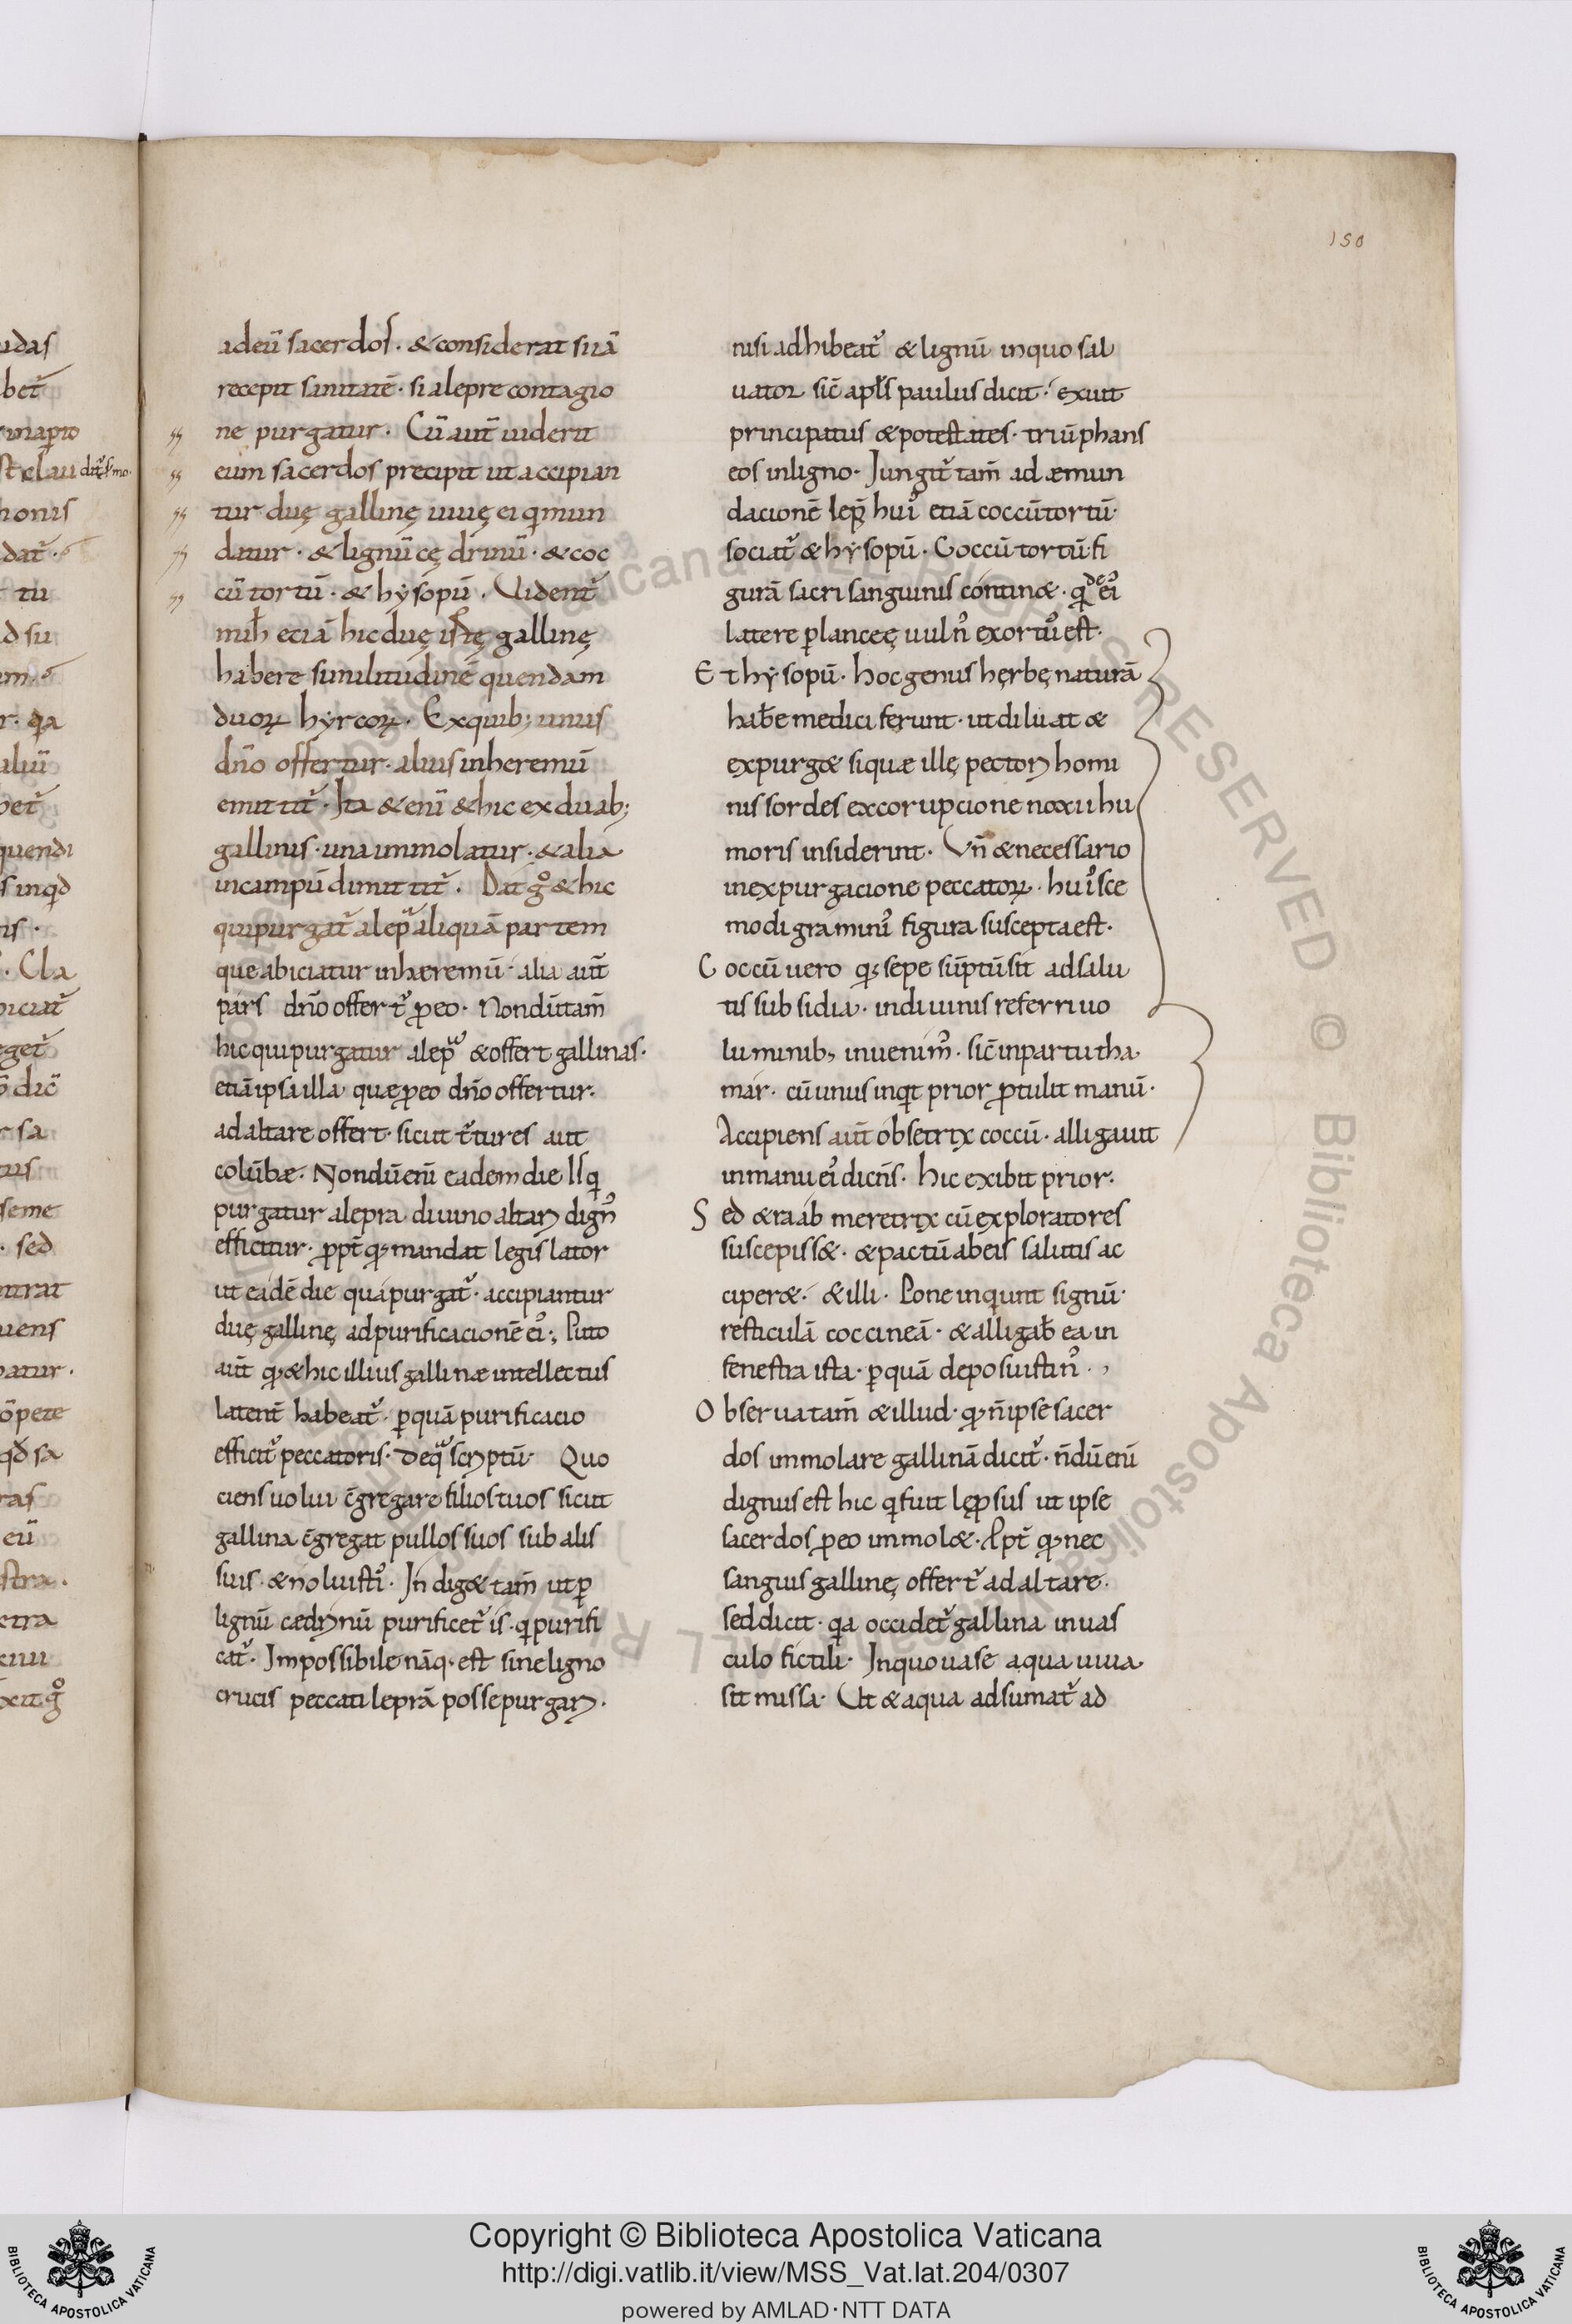 150
adeū sacerdos. & considerat si iā
recepit sanitatē. si a lepre contagio
ne purgatur. Cū aut̄ uiderit
eum sacerdos precipit ut accipian
tur duę gallinę uiuę ei q̄ mun
datur. & lignū cędrinū. & coc
cū tortū. & hysopū. Uident̄
mih̄ eciā hic duę istę gallinę
habere similitudinē quendam
duoꝝ hyrcoꝝ. Ex quib; unus
dn̄o offertur. alius in heremū
emittit̄. Ita & enī & hic ex duab;
gallinis. una immolatur. & alia
in campū dimittit̄. Dat gͦ & hic
qui purgat̄ a lepᵃ aliquā partem
que abiciatur in hæremū. alia aut̄
pars dn̄o offert̄ ꝓ eo. Nondū tam̄
hic qui purgatur a lepᵃ & offert gallinas.
etiā ipsa illa quæ ꝓ eo dn̄o offertur.
ad altare offert. sicut t̄tures aut
colūbæ. Nondū enī eadem die
purgatur a lepra diuino altari dign᾽
efficitur. ꝓpt̄ qꝫ mandat legis lator
ut eadē die qua purgat̄. accipiantur
duę gallinę ad purificacionē ei᾽. Puto
aut̄ qꝫ & hic illius gallinæ intellectus
latent̄ habeat̄. ꝑ quā purificacio
efficit̄ peccatoris. de qᵃ scriptū. Quo
ciens uolui c̄gregare filios tuos sicut
gallina c̄gregat pullos suos sub alis
suis. & noluisti᾽. Indig& tam̄ ut ꝑ
lignū cædrinū purificet̄ is. q̄ purifi
cat̄. Impossibile nāq. est sine ligno
crucis peccati leprā posse purgari.
nisi adhibeat̄ & lignū in quo sal
uator sic̄ apl̄s paulus dicit. exuit
principatus & potestates. triūphans
eos in ligno. Iungit̄ tam̄ ad æmun
dacionē lep̄ hui᾽ etiā coccū tortū.
sociat̄ & hysopū. Coccū tortū fi
gurā sacri sanguinis contin&. q̄ de ei᾽
latere ꝑ lanceę uuln᾽ exortū est.
Et hysopū. hoc genus hęrbę naturā
hab̄e medici ferunt. ut diluat &
expurg& siquæ illę pectori homi
nis sordes ex corupcione noxii hu
moris insiderint. Vn̄ & necessario
in expurgacione peccatoꝝ. hui᾽sce
modi gramini᾽ figura suscepta est.
Coccū uero qꝫ sepe sūptū sit ad salu
tis subsidia. in diuinis referri uo
luminib; inuenim᾽. sic̄ in partu tha
mar. cū unus inqt prior ꝓtulit manū.
Accipiens aut̄ obsetrix coccū. alligauit
in manu ei᾽ dicn̄s. hic exibit prior.
Sed & raab meretrix cū exploratores
suscepiss&. & pactū ab eis salutis ac
ciper&. & illi. Pone inquunt signū.
resticulā coccineā. & alligab̄ ea in
fenestra ista. ꝑ quā deposuisti n᾽.
Obserua tam̄ & illud. qꝫ n̄ ipse sacer
dos immolare gallinā dicit̄. n̄dū enī
dignus est hic q̄ fuit lęprsus ut ipse
sacerdos ꝓ eo immol&. Ppt̄ qꝫ nec
sanguis gallinę offert̄ ad altare.
sed dicit. qa occidet̄ gallina in uas
culo fictili. In quo uase aqua uiua
sit missa. Ut & aqua adsumat̄ ad
Copyright © Biblioteca Apostolica Vaticana
http://digi.vatlib.it/view/MSS_Vat.lat.204/0307
powered by AMLAD·NTT DATA